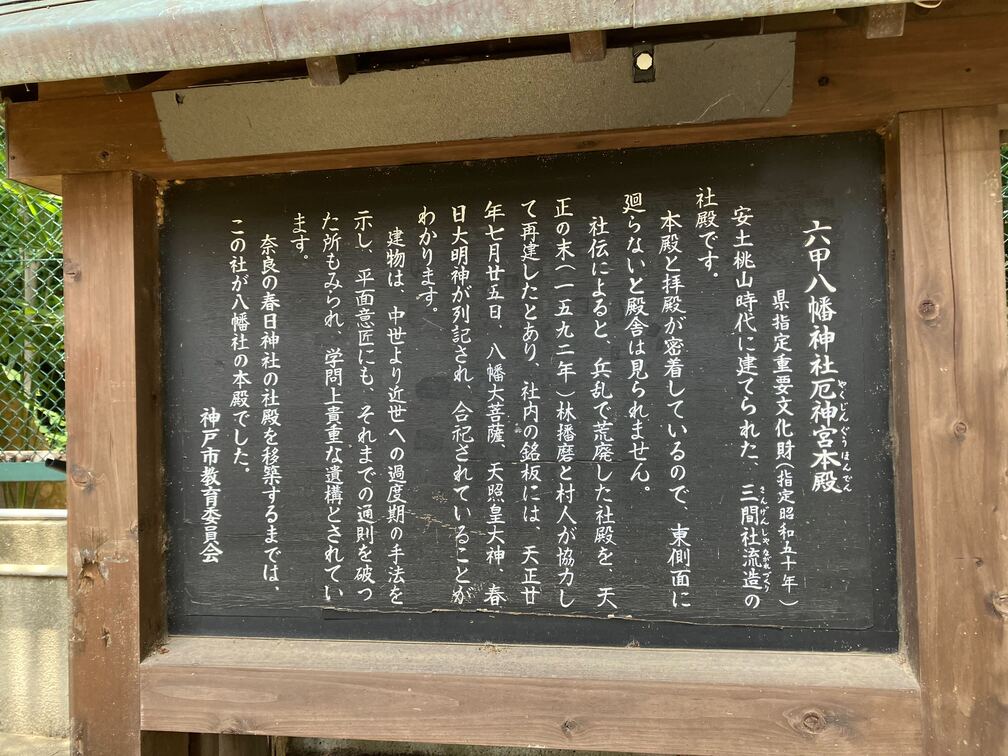 六甲八幡神社厄神宮本殿
やくじんぐうほんでん
県指定重要文化財(指定昭和五十年)
安土桃山時代に建てられた、三間社流造の
さんげんしゃながれづくり
社殿です。
本殿と拝殿が密着しているので、東側面に
廻らないと殿舎は見られません。
社伝によると、兵乱で荒廃した社殿を、天
正の末(一五九二年)林播磨と村人が協力し
て再建したとあり、社内の銘板には、天正廿
年七月廿五日、八幡大菩薩、天照皇大神、春
日大明神が列記され、合祀されていることが
わかります。
建物は、中世より近世への過度期の手法を
示し、平面意匠にも、それまでの通則を破っ
た所もみられ、学問上貴重な遺構とされてい
ます。
奈良の春日神社の社殿を移築するまでは、
この社が八幡社の本殿でした。
神戸市教育委員会